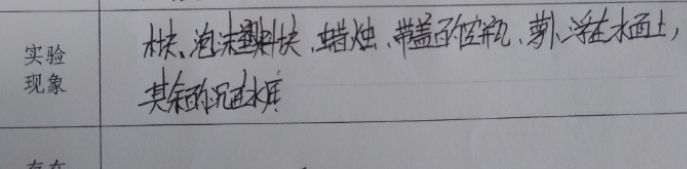 实验
现象
木块、泡沫塑料块、蜡烛、带盖的空瓶、萝卜、浮在水面上，
其余的沉在水底